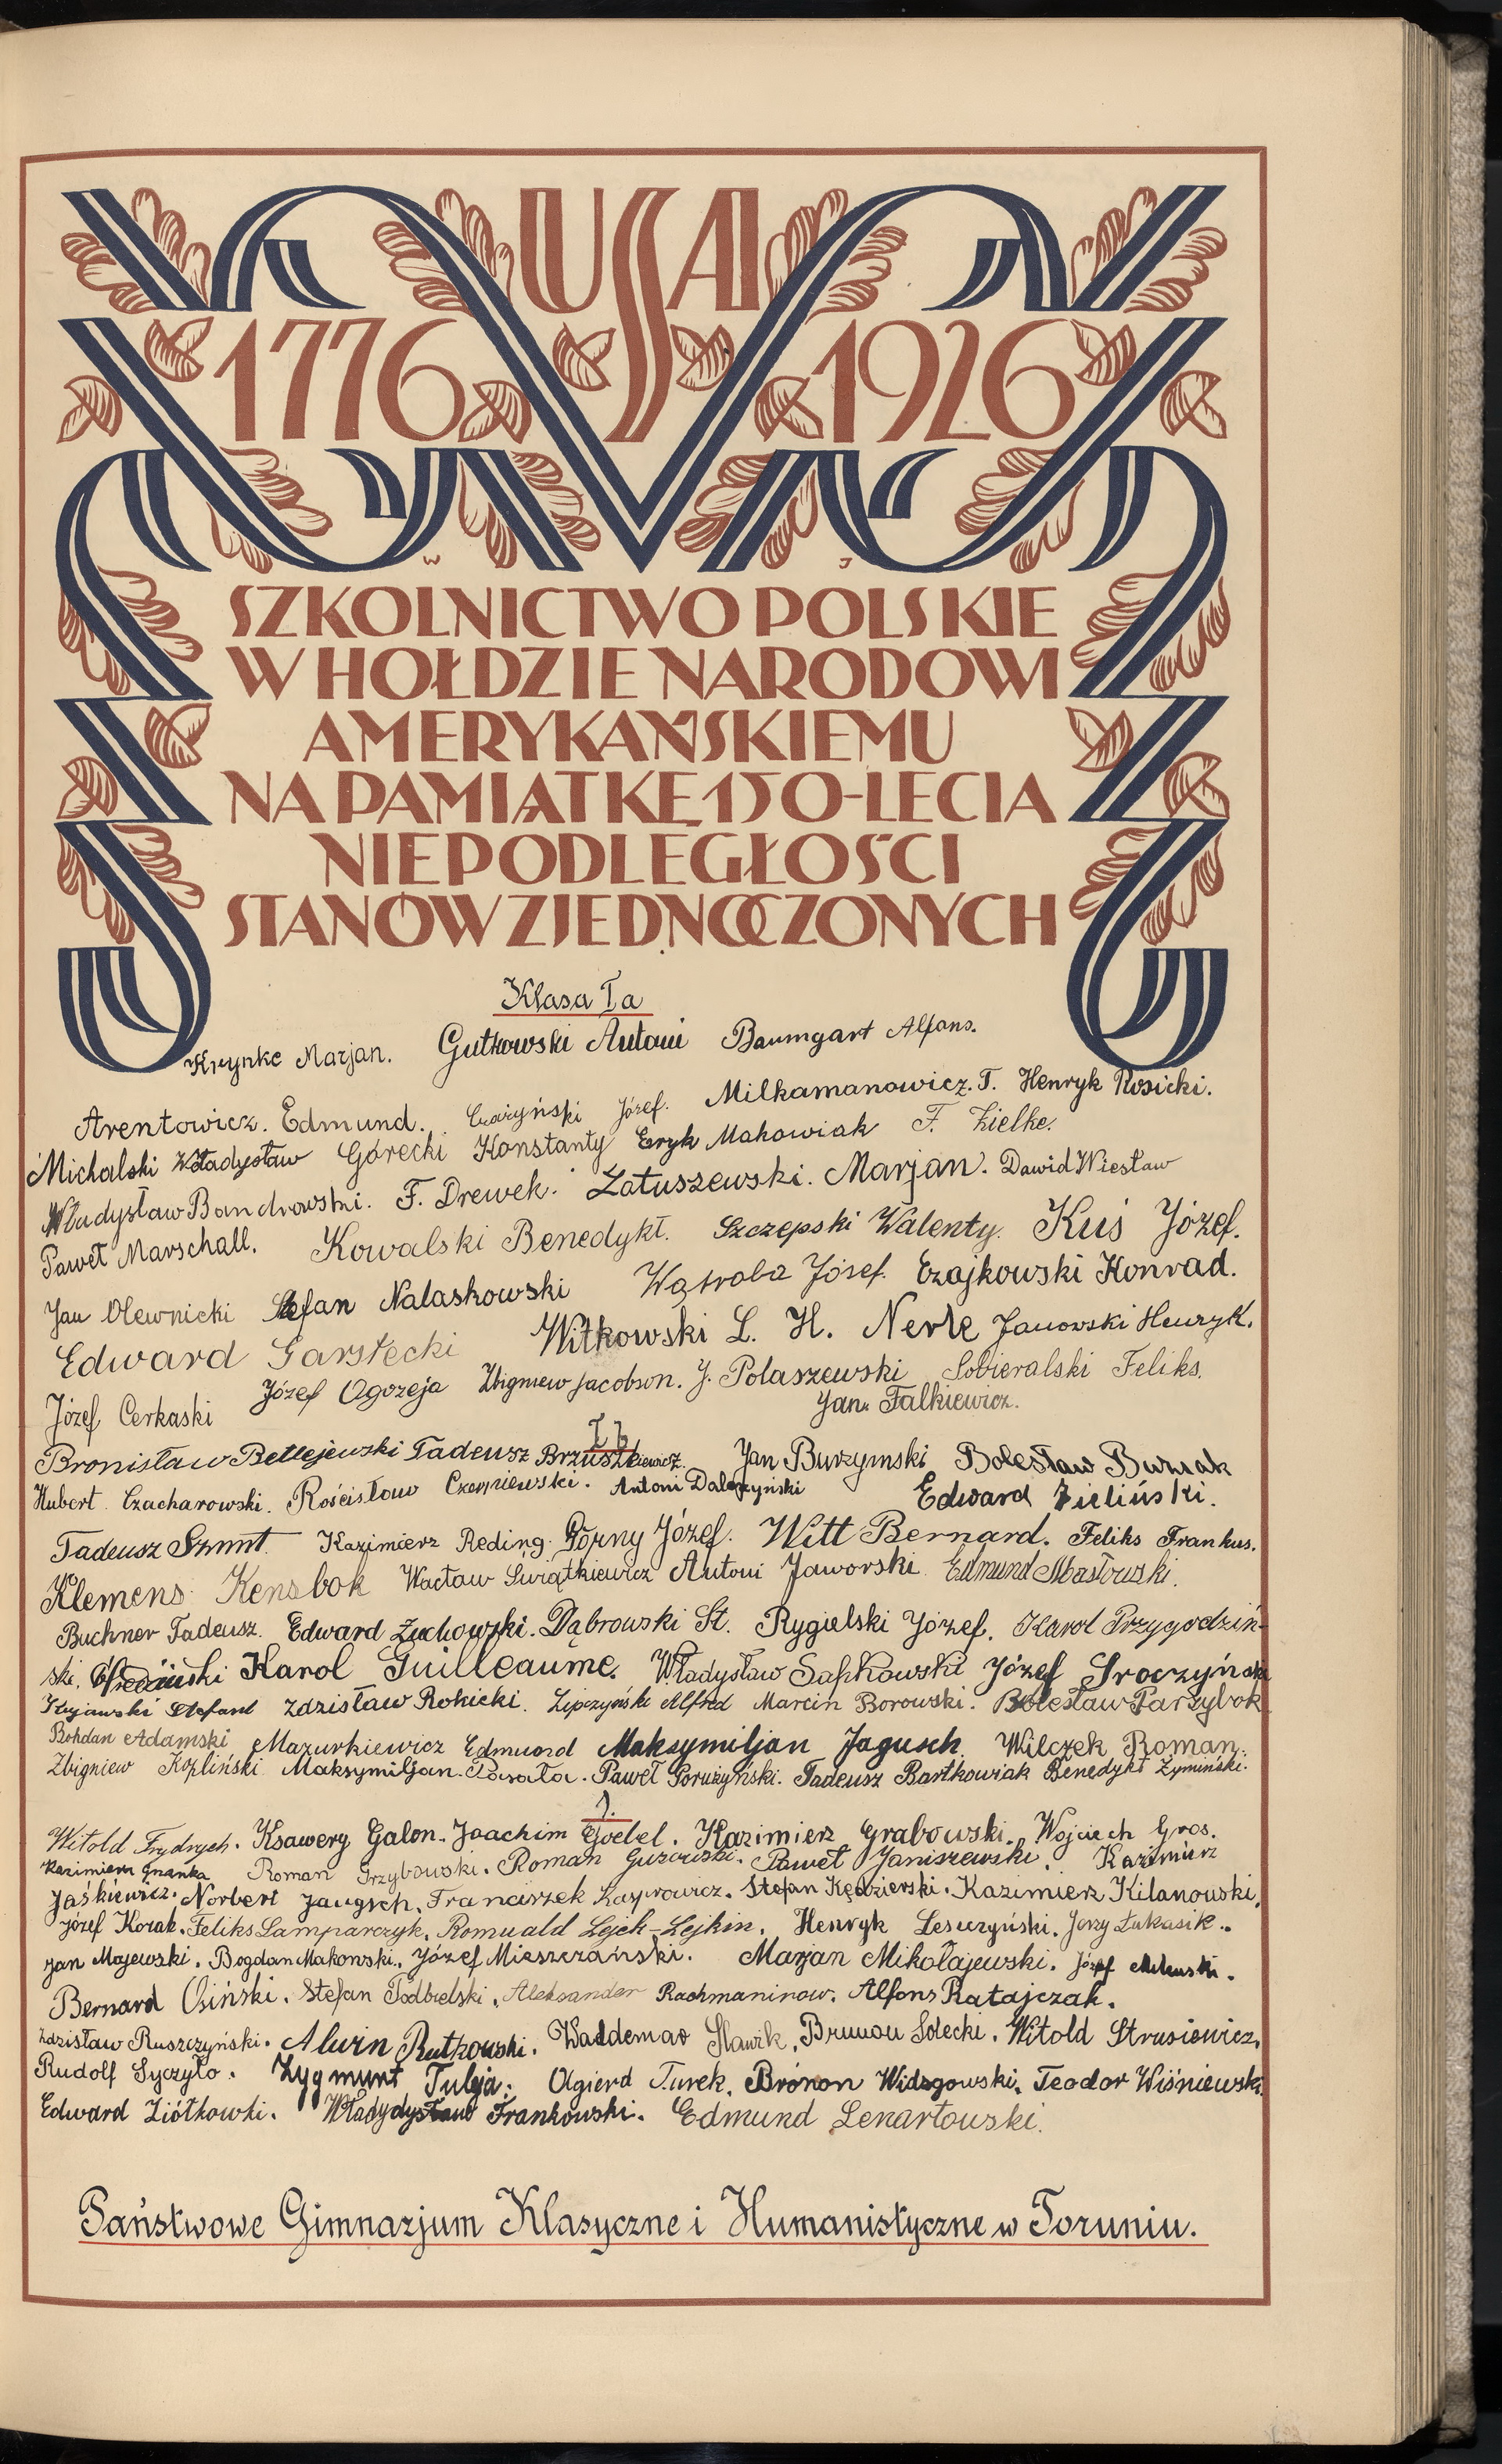 USA
1776 1926
SZKOLNICTWO POLSKIE
W HOŁDZIE NARODOWI
AMERYKAŃSKIEMU
NA PAMIĄTKĘ 150-LECIA
NIEPODLEGŁOŚCI
STANÓW ZJEDNOCZONYCH
Klasa Ia
Krynke Marjan. Gutkowski Antoni Baumgart Alfons.
Arentowicz. Edmund. Józef. Milkamanowicz. T. Henryk Rosicki.
Michalski Władysław Górecki Konstanty Eryk Makowiak F. Zielke.
Władysław Bandrowski. F. Drewek. Zatuszewski. Marjan. Dawid Wiesław
Paweł Marschall. Kowalski Benedykt. Szczepski Walenty. Kuś Józef.
Jan Olewnicki Stefan Nalaskowski Wątroba Józef. Czajkowski Konrad.
Edward Garstecki Witkowski L. H. Nerle Janowski Henryk.
Józef Cerkaski Józef Ogozeja Zbigniew Jacobson. J. Polaszewski Sobieralski Feliks.
Jan Falkiewicz.
I b
Bronisław Betlejewski Tadeusz Brzuszkiewicz. Jan Burzymski Bolesław Buziak
Hubert Czacharowski. Rościsław Czerniewski. Antoni Edward Zieliński.
Tadeusz Szmit. Kazimierz Reding. Górny Józef. Witt Bernard. Feliks Frankus.
Klemens Kensbok Wacław Świątkiewicz Antoni Jaworski Edmund Masłowski.
Buchner Tadeusz. Edward Żuchowski. Dąbrowski St. Rygielski Józef. Karol Przygodziń-
ski. Karol Guilleaume. Władysław Sapkowski Józef Sroczyński
Kujawski Stefan Zdzisław Rokicki. Lipczyński Alfred Marcin Borowski. Bolesław Parzybok
Bohdan Adamski Mazurkiewicz Edmund Maksymiljan Jagusch. Wilczek Roman.
Zbigniew Kozliński Maksymiljan Pasała. Paweł Porużyński. Tadeusz Bartkowiak Benedykt Żymiński.
Witold Frydrych. Ksawery Galon. Joachim Goebel. Kazimierz Grabowski. Wojciech Gros.
Kazimierz Gnanka Roman Grzybowski. Roman Guzowski. Paweł Janiszewski. Kazimierz
Jaśkiewicz. Norbert Jaugsch. Franciszek Kasprowicz. Stefan Kędzierski. Kazimierz Kilanowski.
Józef Kozak. Feliks Lamparczyk. Romuald Lejch-Lejkin. Henryk Leszczyński. Jerzy Łukasik.
Jan Majewski. Bogdan Makowski. Józef Mieszczański. Marjan Mikołajewski. Józef
Bernard Osiński. Stefan Podbielski. Aleksander Rachmaninow. Alfons Ratajczak.
Zdzisław Ruszczyński. Alwin Rutkowski. Waldemar Sławik. Brunon Solecki. Witold Strusiewicz.
Rudolf Syczyło. Zygmunt Tuleja. Olgierd Turek. Bronon Widzgowski. Teodor Wiśniewski.
Edward Ziółkowki. Władydysław Frankowski. Edmund Lenartowski.
Państwowe Gimnazjum Klasyczne i Humanistyczne w Toruniu.